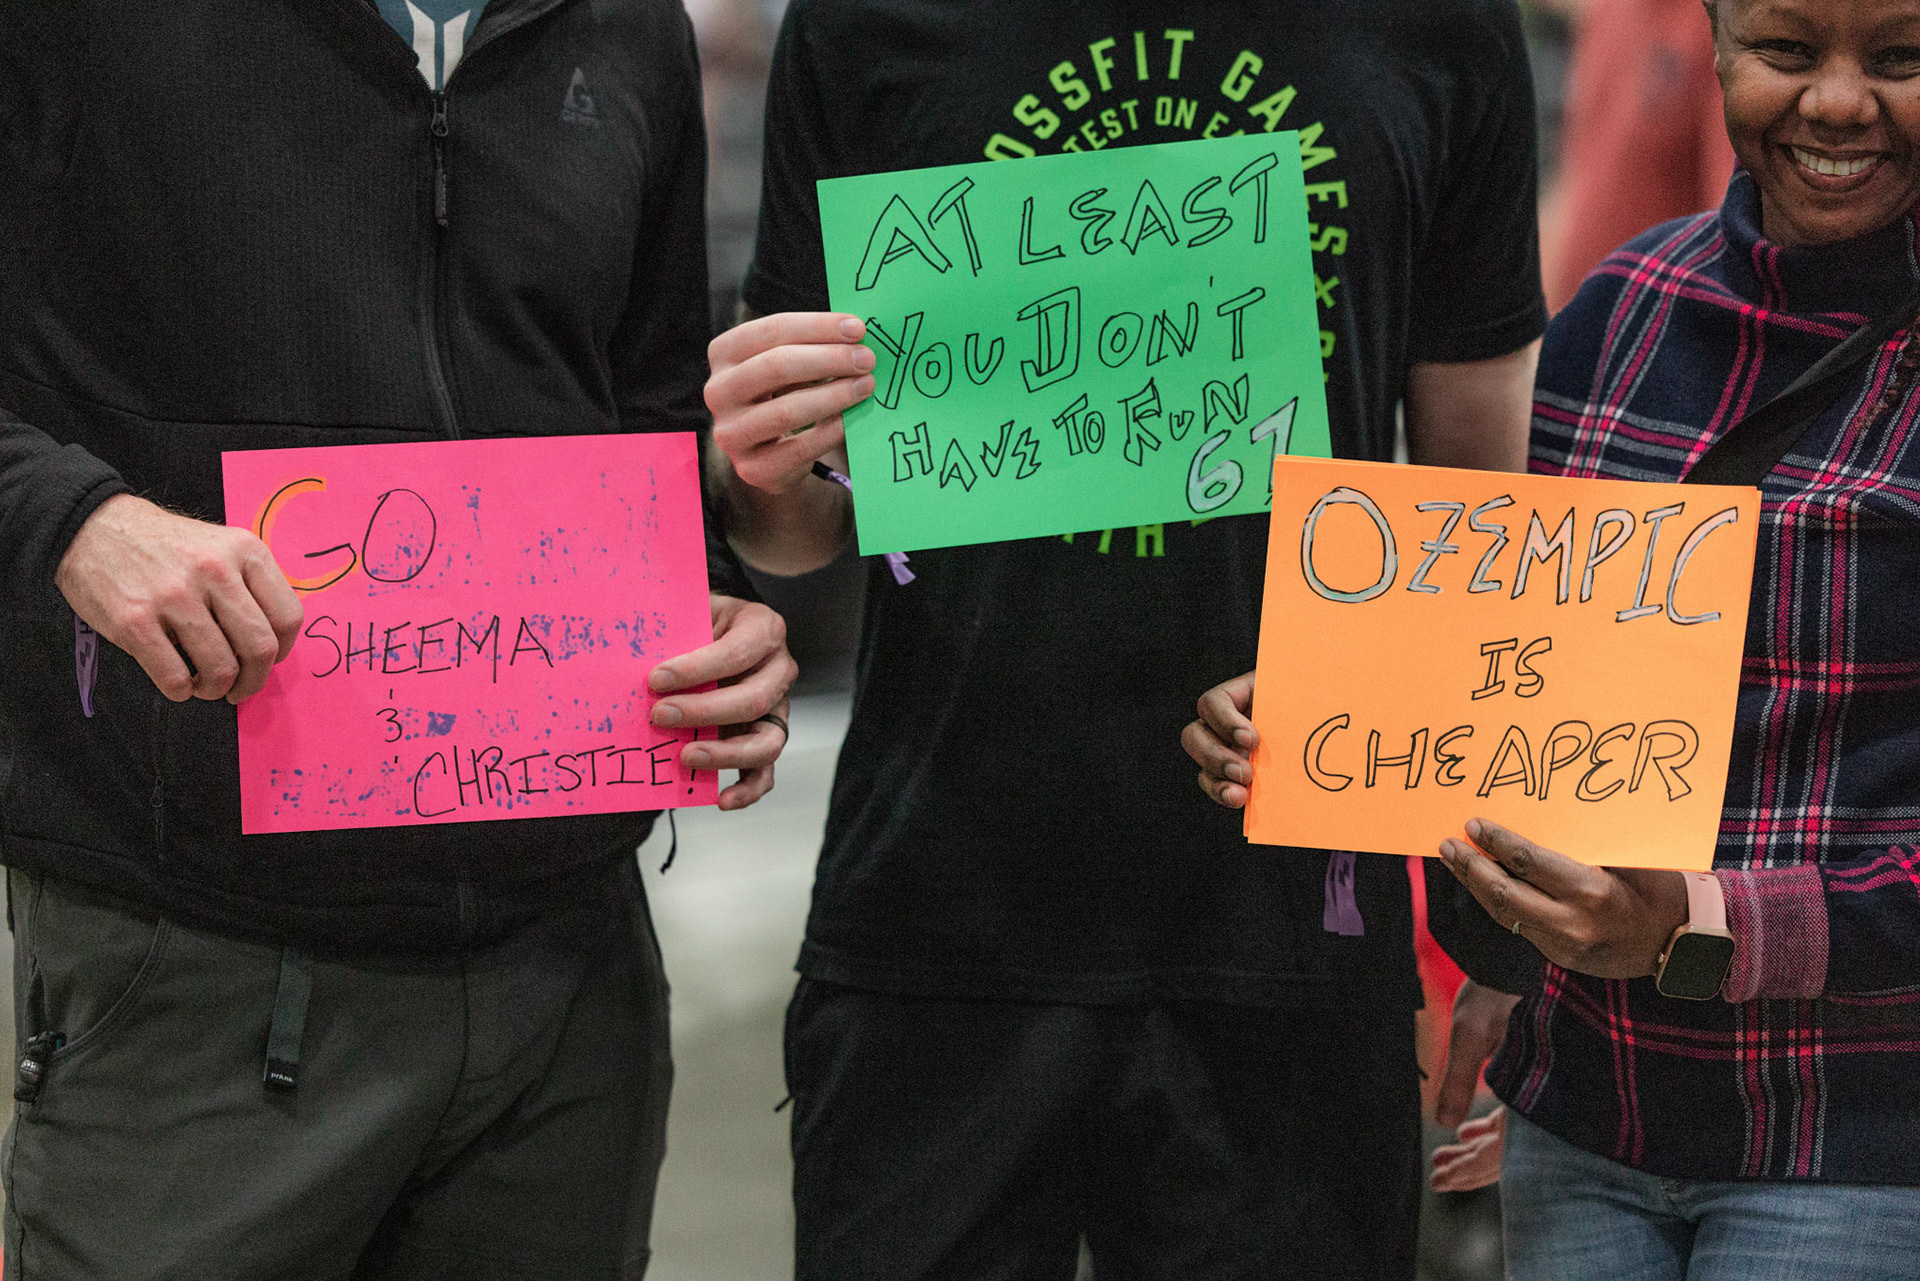 GO
SHEEMA
&
CHRISTIE!
OSSFIT GAMES
TEST ON
AT LEAST
YOU DON'T
HAVE TO RUN
67
OZEMPIC
IS
CHEAPER
prAna